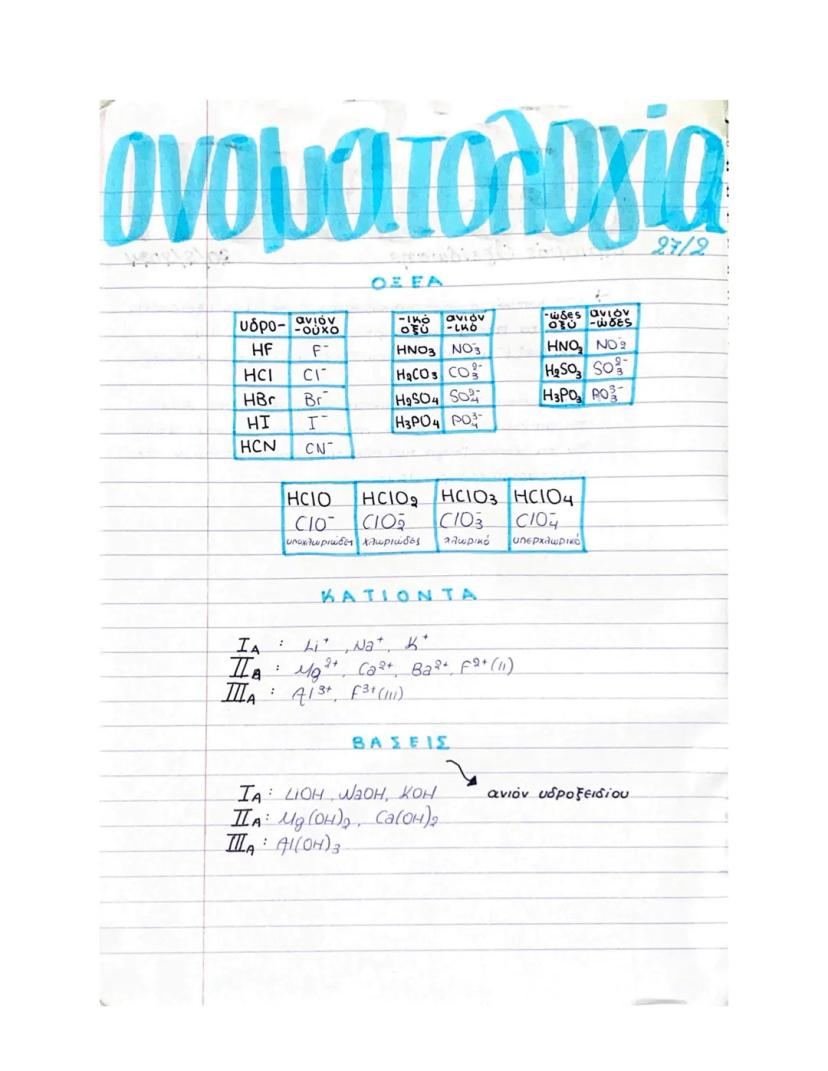 ονοματολογία
27/2
ΟΞΕΑ
υδρο- ανιόν -ούχο
HF F⁻
HCl Cl⁻
HBr Br⁻
HI I⁻
HCN CN⁻
-ικό οξύ ανιόν -ικό
HNO₃ NO₃⁻
H₂CO₃ CO₃²⁻
H₂SO₄ SO₄²⁻
H₃PO₄ PO₄³⁻
-ώδες οξύ ανιόν -ώδες
HNO₂ NO₂⁻
H₂SO₃ SO₃²⁻
H₃PO₃ PO₃³⁻
HClO HClO₂ HClO₃ HClO₄
ClO⁻ ClO₂⁻ ClO₃⁻ ClO₄⁻
υποχλωριώδες χλωριώδες χλωρικό υπερχλωρικό
ΚΑΤΙΟΝΤΑ
IA : Li⁺, Na⁺, K⁺
IIA : Mg²⁺, Ca²⁺, Ba²⁺, F²⁺(II)
IIIA : Al³⁺, F³⁺(III)
ΒΑΣΕΙΣ
ανιόν υδροξειδίου
IA : LiOH, NaOH, KOH
IIA : Mg(OH)₂, Ca(OH)₂
IIIA : Al(OH)₃